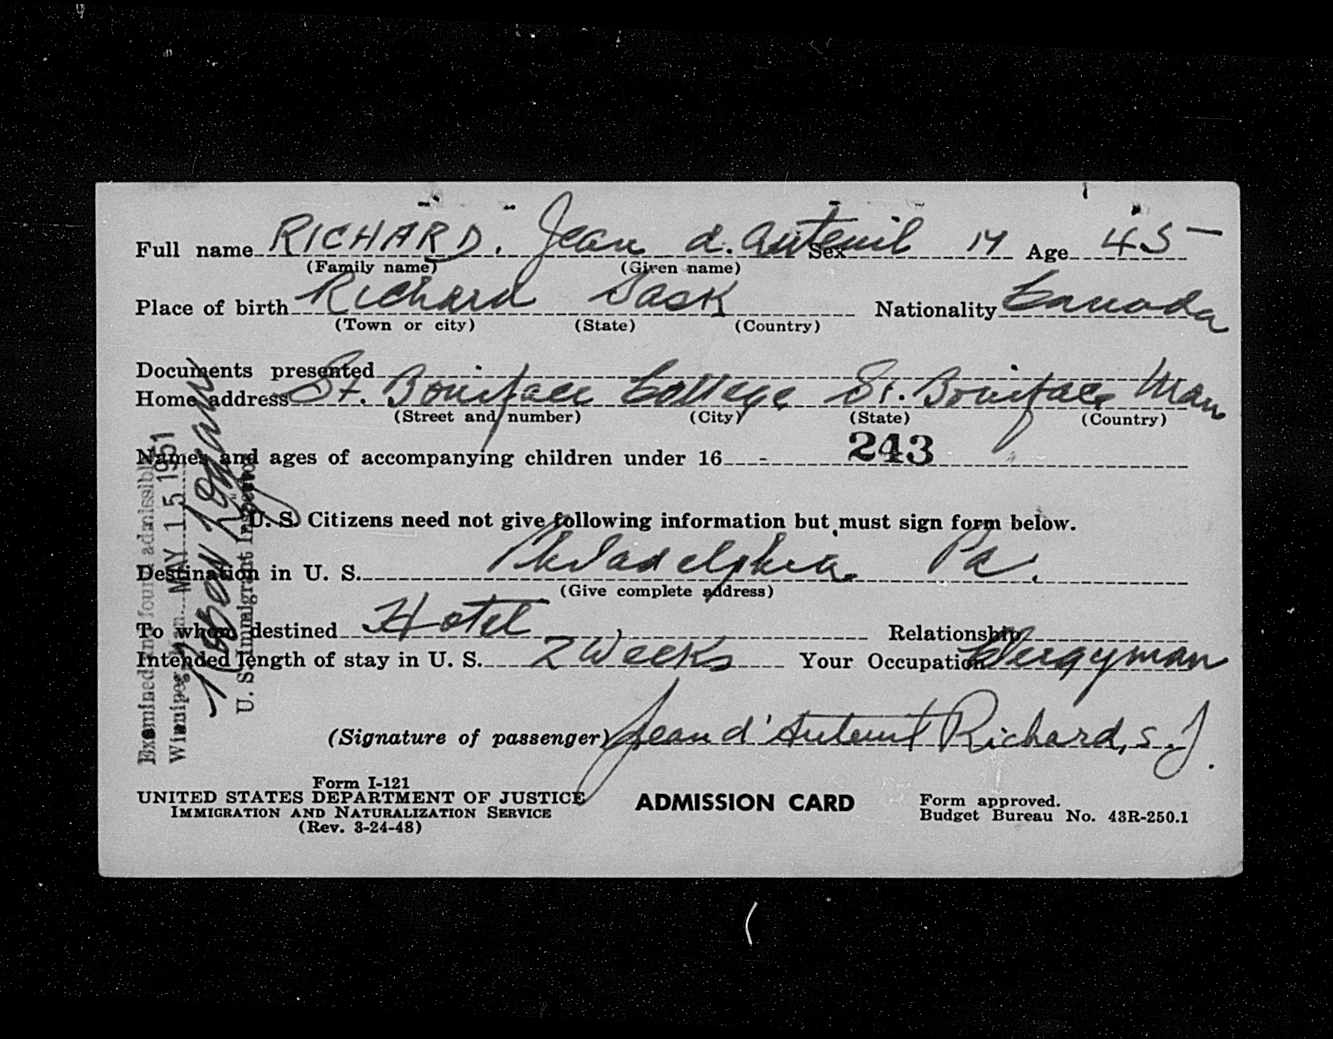 Full name RICHARD. Jean d. Auteuil Sex M Age 45
(Family name) (Given name)
Place of birth Richard Sask Nationality Canada
(Town or city) (State) (Country)
Documents presented
Home address St. Boniface College St. Boniface Man
(Street and number) (City) (State) (Country)
Names and ages of accompanying children under 16 - 243
U. S. Citizens need not give following information but must sign form below.
Destination in U. S. Philadelphia Pa.
(Give complete address)
To whom destined Hotel Relationship
Intended length of stay in U. S. 2 Weeks Your Occupation Clergyman
(Signature of passenger) Jean d'Auteuil Richard, S.J.
Form I-121
UNITED STATES DEPARTMENT OF JUSTICE
IMMIGRATION AND NATURALIZATION SERVICE
(Rev. 3-24-48)
ADMISSION CARD
Form approved.
Budget Bureau No. 43R-250.1
Examined and found admissible
Winnipeg, Man. MAY 15 1951
U. S. Immigrant Inspector